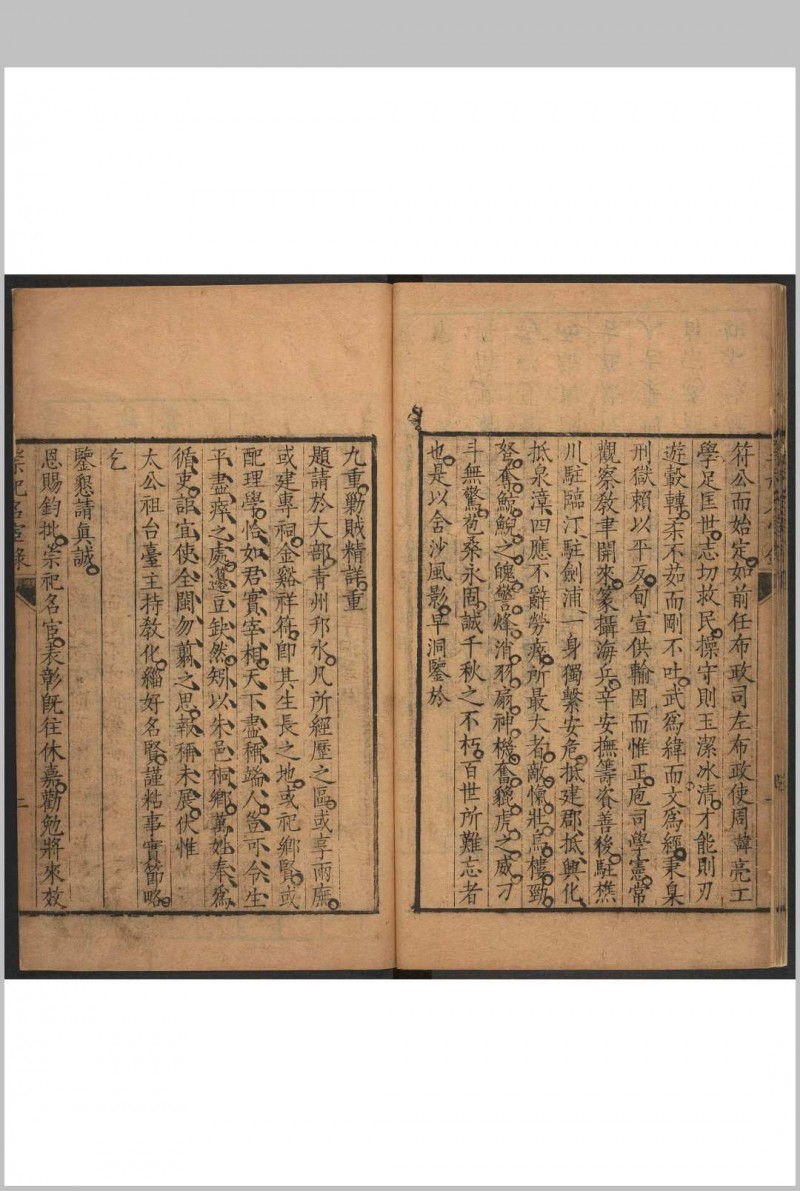 符公而始定如前任布政司左布政使周諱亮工
學足匡世志切救民操守則玉潔冰清才能則刃
遊轂轉柔不茹而剛不吐武爲緯而文爲經秉臬
刑獄賴以平反旬宣供輸因而惟正庖司學憲常
觀察敎聿開來篆攝海兵辛安撫籌咨善後駐樵
川駐臨汀駐劍浦一身獨繫安危抵建郡抵興化
抵泉漳四應不辭勞瘁所最大者敵愾壯烏樓勁
弩奮鯨鯢之魄警烽消羽扇神機奮貔虎之威刁
斗無驚苞桑永固誠千秋之不朽百世所難忘者
也是以含沙風影早洞鑒於
九重勦賊精詳重
題請於大部青州邗水凡所經歷之區或享兩廡
或建專祠金谿祥符卽其生長之地或祀鄉賢或
配理學恰如君實宰相天下盡稱端人豈可令生
平盡瘁之處籩豆缺然矧以朱邑桐鄉萬姓奉爲
循吏詎宜使全閩勿翦之思報稱未展伏惟
太公祖台臺主持敎化緇好名賢謹粘事實節略
乞
鑒懇請眞誠
恩賜鈞批崇祀名宦表彰旣往休嘉勸勉將來效
崇祀名宦錄
二